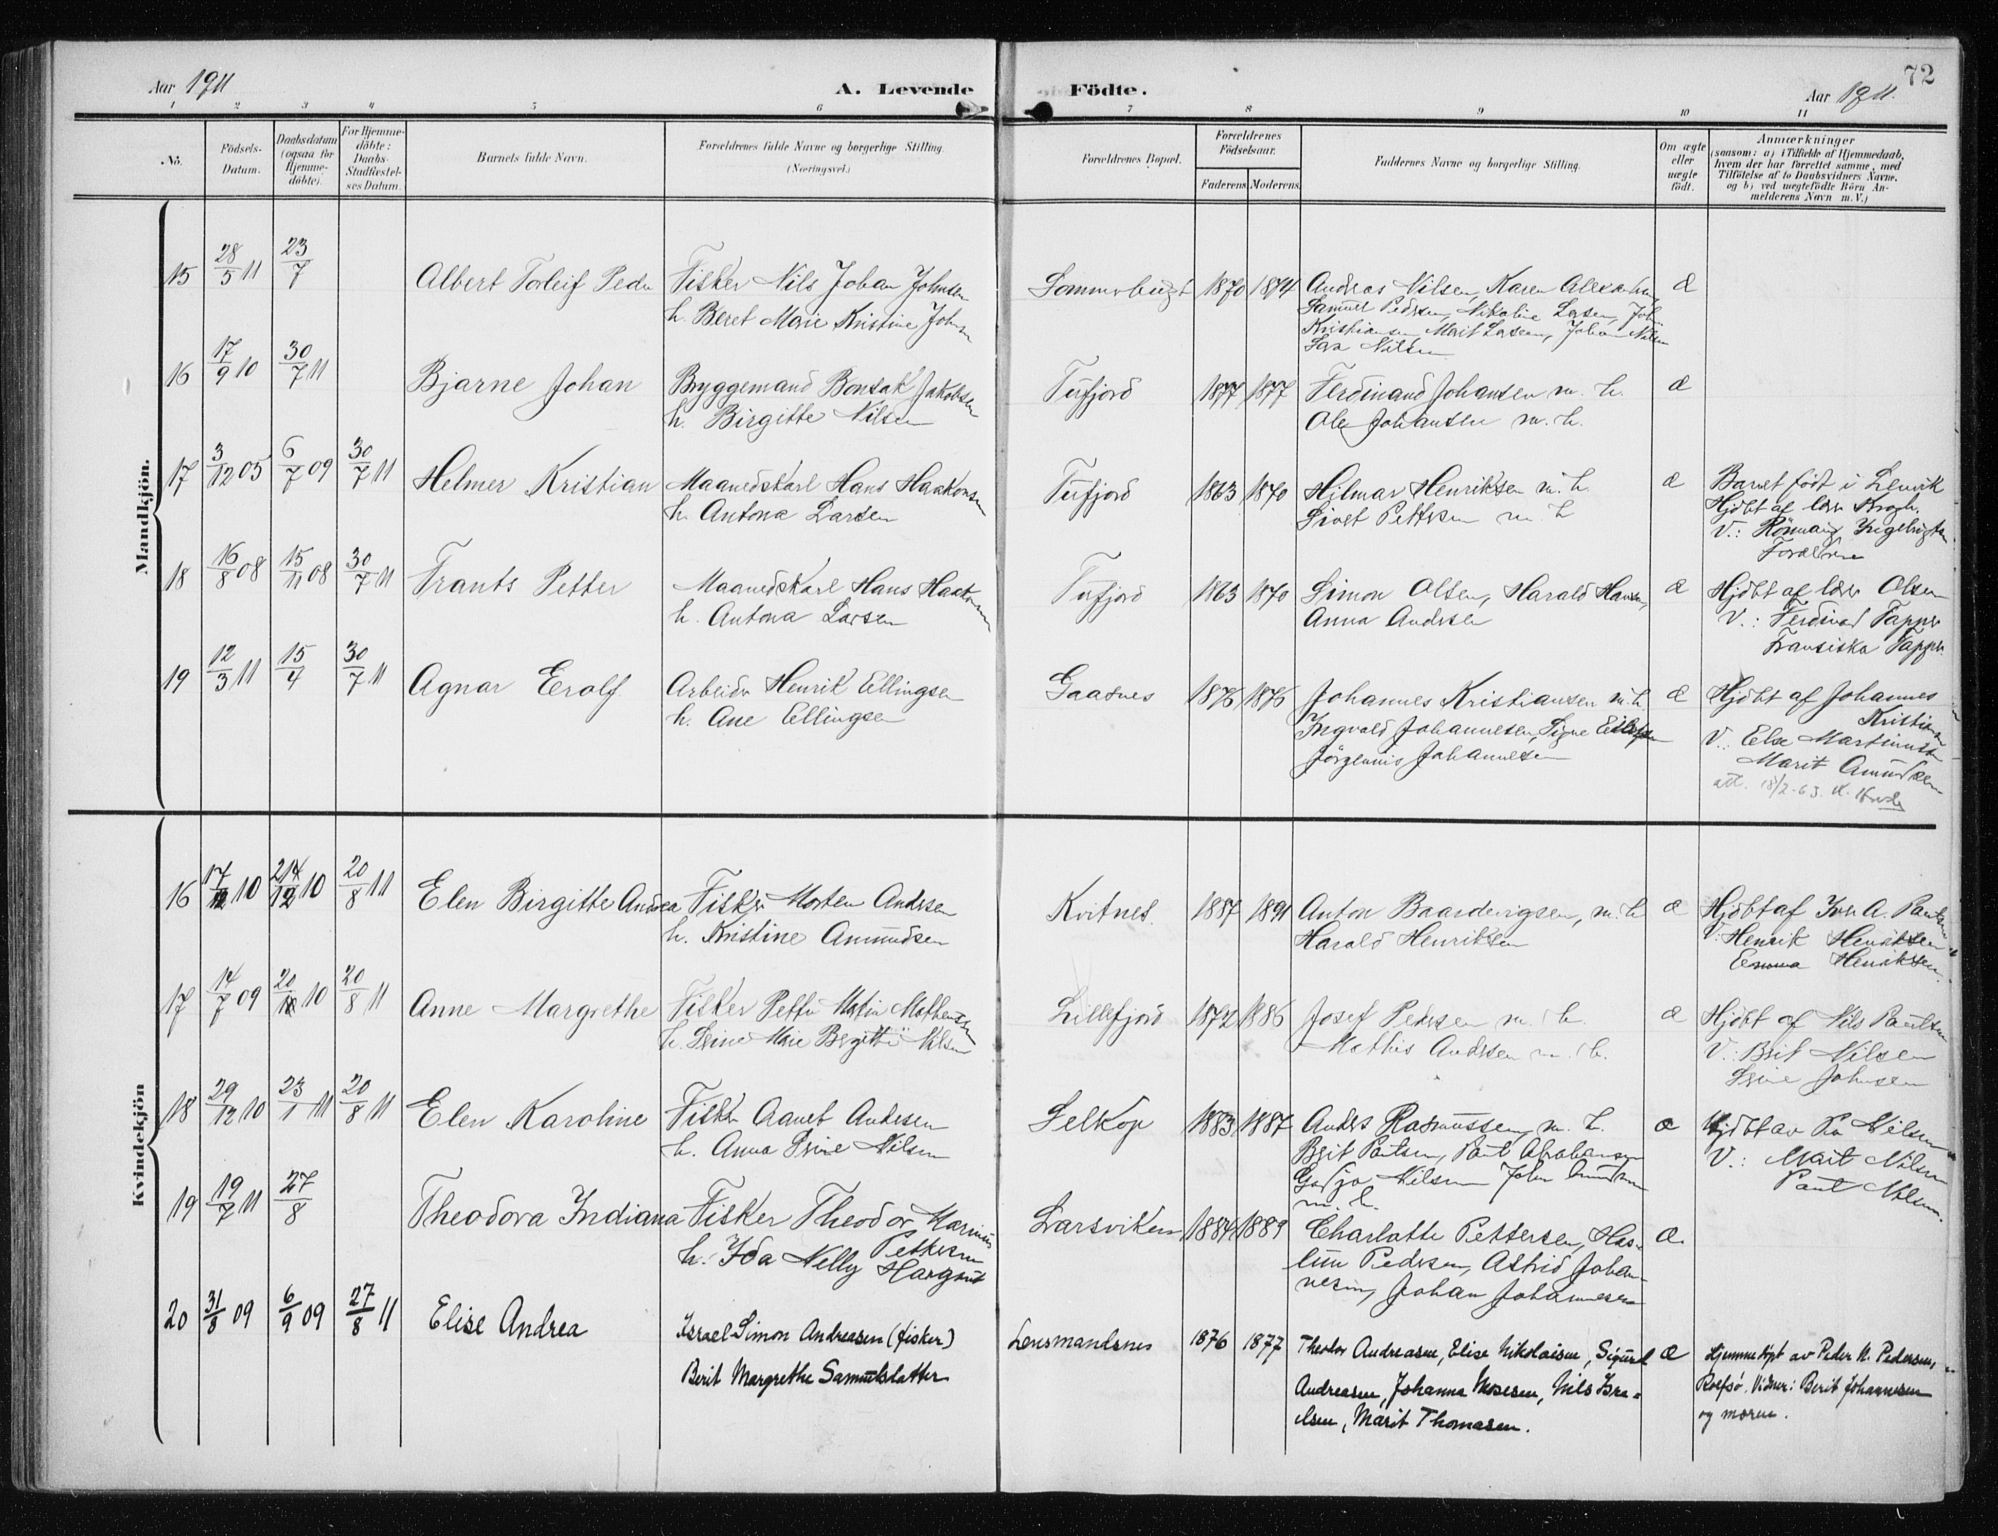 72
Aar 1911
A. Levende
Födte.
Aar 1911.
1 2 3 4 5 6 7 8 9 10 11
No.
Födsels-
Datum.
Daabsdatum
(ogsaa for
Hjemme-
döbte).
For Hjemme-
döbte:
Daabs-
Stadfæstel-
ses Datum.
Barnets fulde Navn.
Forældrenes fulde Navne og borgerlige Stilling.
(Næringsvei.)
Forældrenes Bopæl.
Forældrenes
Fødselsaar.
Faderens. Moderens.
Faddernes Navne og borgerlige Stilling.
Om ægte
eller
uægte
født.
Anmærkninger
(saasom: a) i Tilfælde af Hjemmedaab,
hvem der har forrettet samme, med
Tilföielse af to Daabsvidners Navne,
og b) ved uægtefödte Börn An-
melderens Navn m. V.)
Mandkjön.
15 28/5 11 23/7 Albert Toleif Peder Fisker Nils Johan Johnsen
h. Beret Marie Kristine Johnsen
Sommerbugt 1870 1874 Andreas Nilsen, Karen
Samuel Pedersen, Nikoline Larsen,
Kristiansen, Marit Larsen, Johan Nilsen
Sara Nilsen
æ
16 17/9 10 30/7 11 Bjarne Johan Bryggemand Bonsak Jakobsen
h. Birgitte Nilsen
Tufjord 1877 1877 Ferdinand Johansen m. h.
Ole Johansen m. h.
æ
17 3/12 05 6/7 09 30/7 11 Helmer Kristian Maanedskarl Hans Haakonsen
h. Antona Larsen
Tufjord 1863 1870 Hilmar Henriksen m. h.
Sivert Pettersen m. h.
æ Barnet født i Lenvik
Hjdbt af lærer Krogh.
V.: Ingebrigtsen
Forældrene
18 16/8 08 15/11 08 30/7 11 Frants Petter Maanedskarl Hans Haakonsen
h. Antona Larsen
Tufjord 1863 1870 Simon Olsen, Harald Hansen,
Anna Andersen
æ Hjdbt af lærer Olsen
V.: Ferdinand Tapper
Fransiska Tapper.
19 12/3 11 15/4 30/7 11 Agnar Erolf Arbeider Henrik Ellingsen
h. Ane Ellingsen
Gaasnes 1876 1876 Johannes Kristiansen m. h.
Ingvald Johannesen, Signe
Jörginus Johannesen
æ Hjdbt af Johannes
Kristiansen
V.: Else
Marit Amundsen
att. 18/2-63.
Kvindekjön
16 17/12 10 24/12 10 20/8 11 Elen Birgitte Andrea Fisker Morten Andersen
h. Kristine Amundsen
Kvitnes. 1887 1891 Anton Baardevigsen, m. h
Harald Henriksen
æ Hjdbt af Iver A. Paulsen
V: Henrik Henriksen
Emma Henriksen.
17 14/7 09 20/10 20/8 11 Anne Margrethe Fisker Petter Martin Mathesen
h. Marie Birgitte Nilsen
Lillefjord 1872 1886 Josef Pedersen m. h.
Mathis Andersen m. h.
æ Hjdbt af Nils Paulsen
V.: Brit Nilsen
Johnsen
18 29/12 10 23/1 11 20/8 11 Elen Karoline Fisker Andersen
h. Anna Nilsen
Selkop 1883 1887 Anders Rasmussen, m. h.
Brit Paulsen, Paul Abrahamsen
Nilsen John Amundsen
m. h.
æ Hjdbt av Nilsen
V.: Marit Nilsen
Paul Nilsen.
19 19/7 11 27/8 Theodora Indiana Fisker Theodor Marinus
Pettersen
h. Ida Nelly Hargaut
Larsviken 1884 1889 Charlotte Pettersen, Has-
Pedersen, Astrid Johan-
nesen, Johan Johannesen
æ.
20 31/8 09 6/9 09 27/8 11 Elise Andrea Israel Simon Andreasen (fisker)
Berit Margrethe Samuelsdatter
Lensmandsnes 1876 1877 Theodor Andreasen, Elise Nikolaisen, Sigurd
Andreasen, Johanna Mosesen, Nils Isra-
elsen, Marit Thomasen.
æ Hjemmedöpt av Peder N. Pedersen,
Rolfsö. Vidner: Berit Johannesen
og moren.